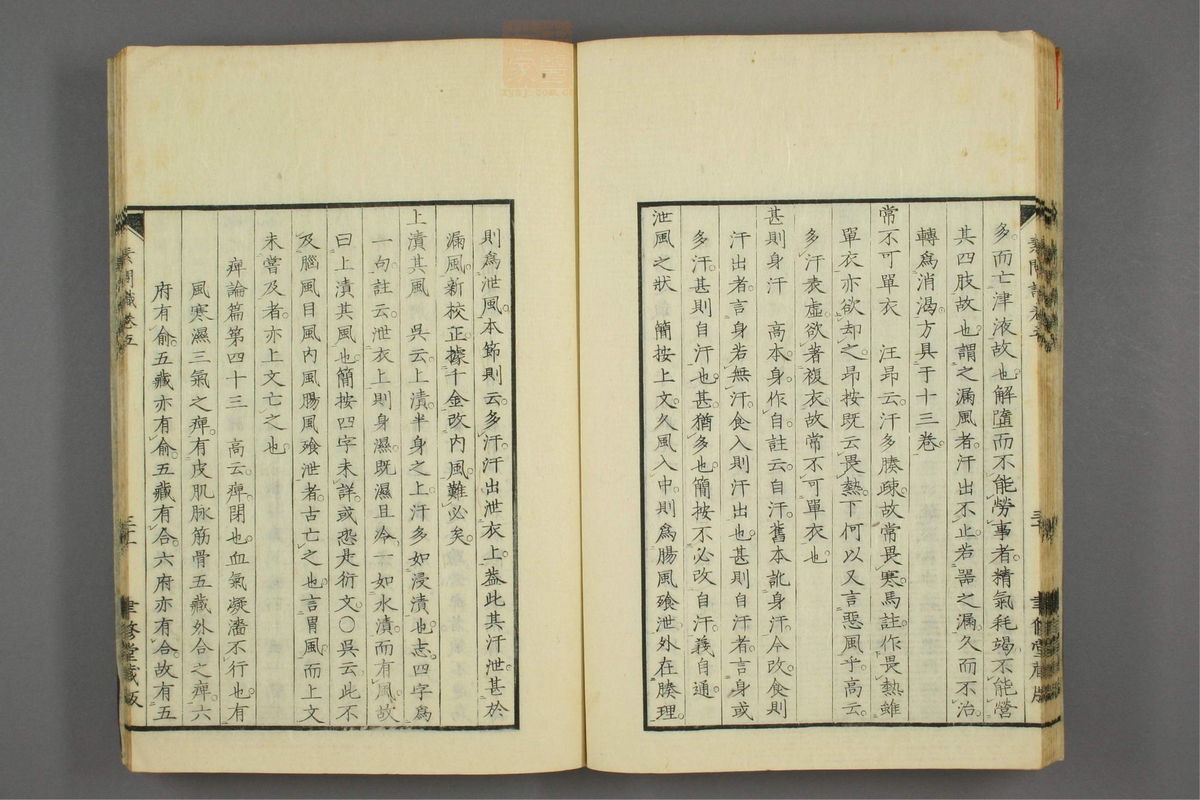 多而亡津液故也解墮而不能勞事者精氣耗竭不能營
其四肢故也謂之漏風者汗出不止若器之漏久而不治
轉爲消渴方具于十三卷
常不可單衣 汪昂云汗多腠疎故常畏寒馬註作畏熱雖
單衣亦欲却之昂按既云畏熱下何以又言惡風乎高云
多汗表虛欲著複衣故常不可單衣也
甚則身汗 高本身作自註云自汗舊本訛身汗今改食則
汗出者言身若無汗食入則汗出也甚則自汗者言身或
多汗甚則自汗也甚猶多也簡按不必改自汗義自通
泄風之狀 簡按上文久風入中則爲腸風飱泄外在腠理
則爲泄風本節則云多汗汗出泄衣上蓋此其汗泄甚於
漏風新校正據千金改內風難必矣
上漬其風 吳云上漬半身之上汗多如浸漬也志四字爲
一句註云泄衣上則身濕既濕且冷一如水漬而有風故
曰上漬其風也簡按四字未詳或恐是衍文○吳云此不
及腦風目風內風腸風飱泄者古亡之也言胃風而上文
未嘗及者亦上文亡之也
痺論篇第四十三 高云痺閉也血氣凝濇不行也有
風寒濕三氣之痺有皮肌脉筋骨五藏外合之痺六
府有俞五藏亦有俞五藏有合六府亦有合故有五
素問識卷五
聿修堂藏版